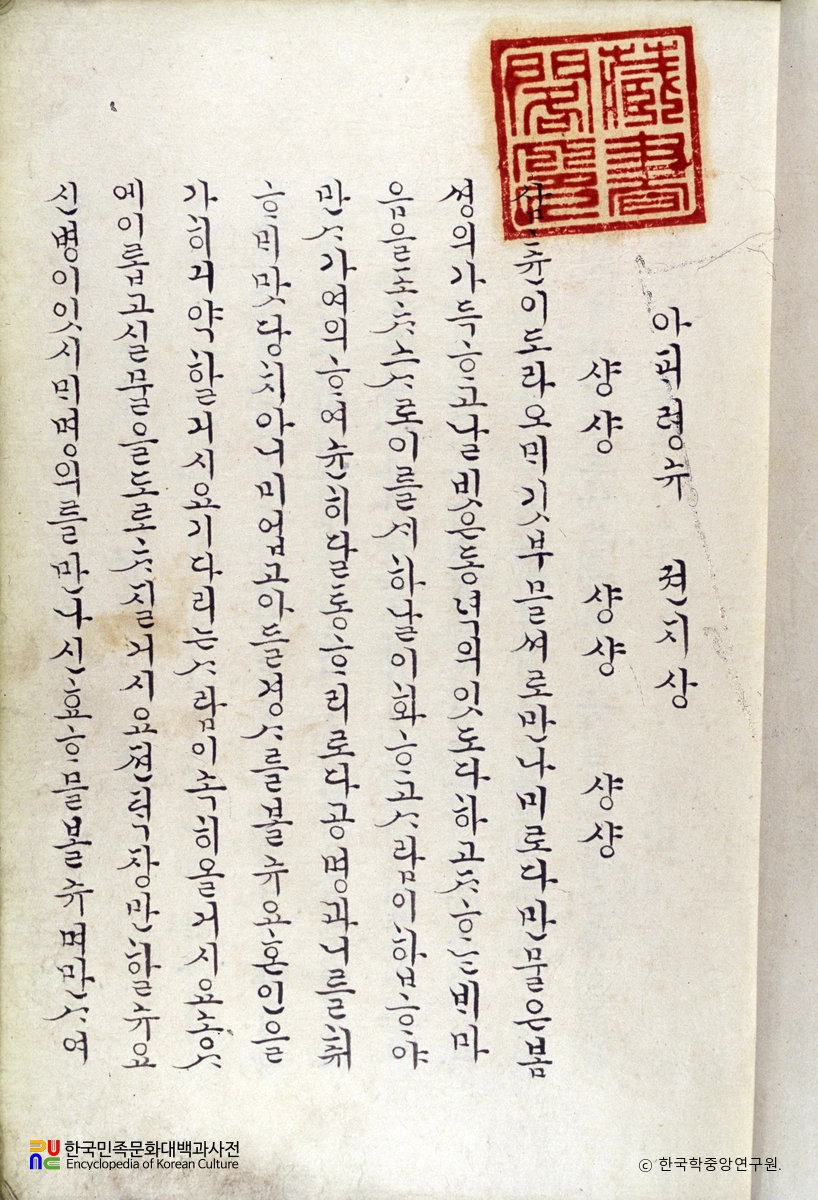 藏書閣印
아ᄑᆡ령슈 권지상
샹샹 샹샹 샹샹
삼츈이도라오ᄆᆡ깃부믈셔로만나미로다만물은봄
셩의가득ᄒᆞ고날빗은동녁의잇도다하고ᄌᆞᄒᆞᄂᆞᆫᄇᆡ마
음을조ᄎᆞ스ᄉᆞ로이를지하날이화ᄒᆞ고ᄉᆞ람이합ᄒᆞ야
만ᄉᆞ가여의ᄒᆞ여슌히달통ᄒᆞ리로다공명과니를취
ᄒᆞᄆᆡ맛당치아니미업고아들경ᄉᆞ를볼슈요혼인을
가히긔약할거시요기다리ᄂᆞᆫᄉᆞ람이속히올거시요송ᄉᆞ
에이롭고실물을도로ᄎᆞ질거시요젼ᄐᆡᆨ장만할슈요
신병이잇시ᄆᆡ명의를만나신효ᄒᆞ믈볼슈며만ᄉᆞ여
한국민족문화대백과사전
Encyclopedia of Korean Culture
ⓒ 한국학중앙연구원.